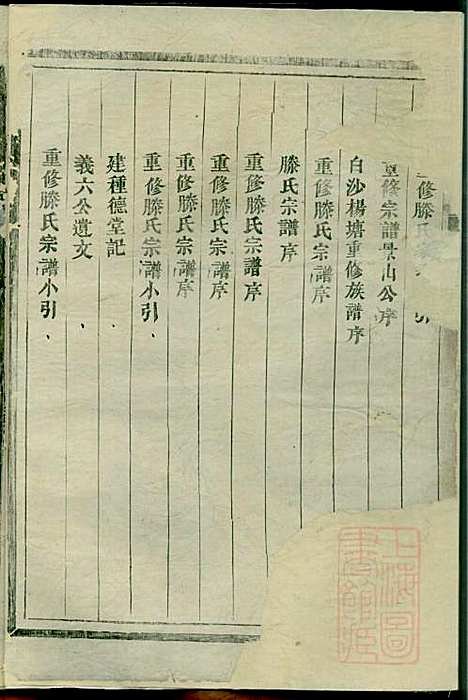 修滕引
重修宗譜景山公序
白沙楊塘重修族譜序
重修滕氏宗譜序
滕氏宗譜序
重修滕氏宗譜序
重修滕氏宗譜序
重修滕氏宗譜序
重修滕氏宗譜小引
建種德堂記
義六公遺文
重修滕氏宗譜小引
上海圖書館藏